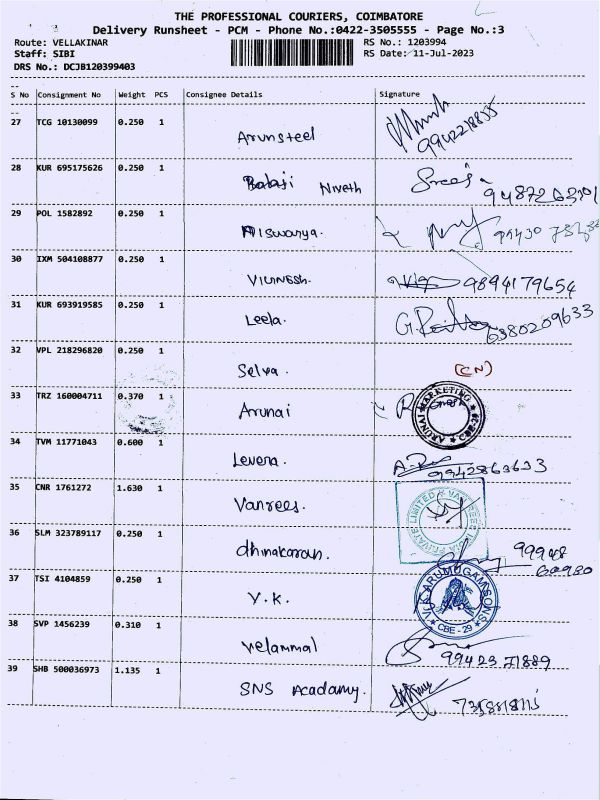 THE PROFESSIONAL COURIERS, COIMBATORE
Delivery Runsheet - PCM - Phone No.:0422-3505555 - Page No.:3
Route: VELLAKINAR RS No.: 1203994
Staff: SIBI RS Date: 11-Jul-2023
DRS No.: DCJB120399403
S No Consignment No Weight PCS Consignee Details Signature
27 TCG 10130099 0.250 1 Arunsteel 9942218835
28 KUR 695175626 0.250 1 Balaji Niveth Sree
29 POL 1582892 0.250 1 Aiswarya.
30 IXM 504108877 0.250 1 Vignesh. 9894179654
31 KUR 693919585 0.250 1 Leela. 6380209633
32 VPL 218296820 0.250 1 Selva. (CN)
33 TRZ 160004711 0.370 1 Arunai ARUNAI MARKETING CBE-29
34 TVM 11771043 0.600 1 Levera. 9942863633
35 CNR 1761272 1.630 1 Vanrees. VANREES INDIA PRIVATE LIMITED
36 SLM 323789117 0.250 1 dhinakaran. 99948
60980
37 TSI 4104859 0.250 1 V.K. V.K. ARUMUGAM SONS CBE - 29
38 SVP 1456239 0.310 1 velammal 99423 71889
39 SHB 500036973 1.135 1 SNS Acadamy.